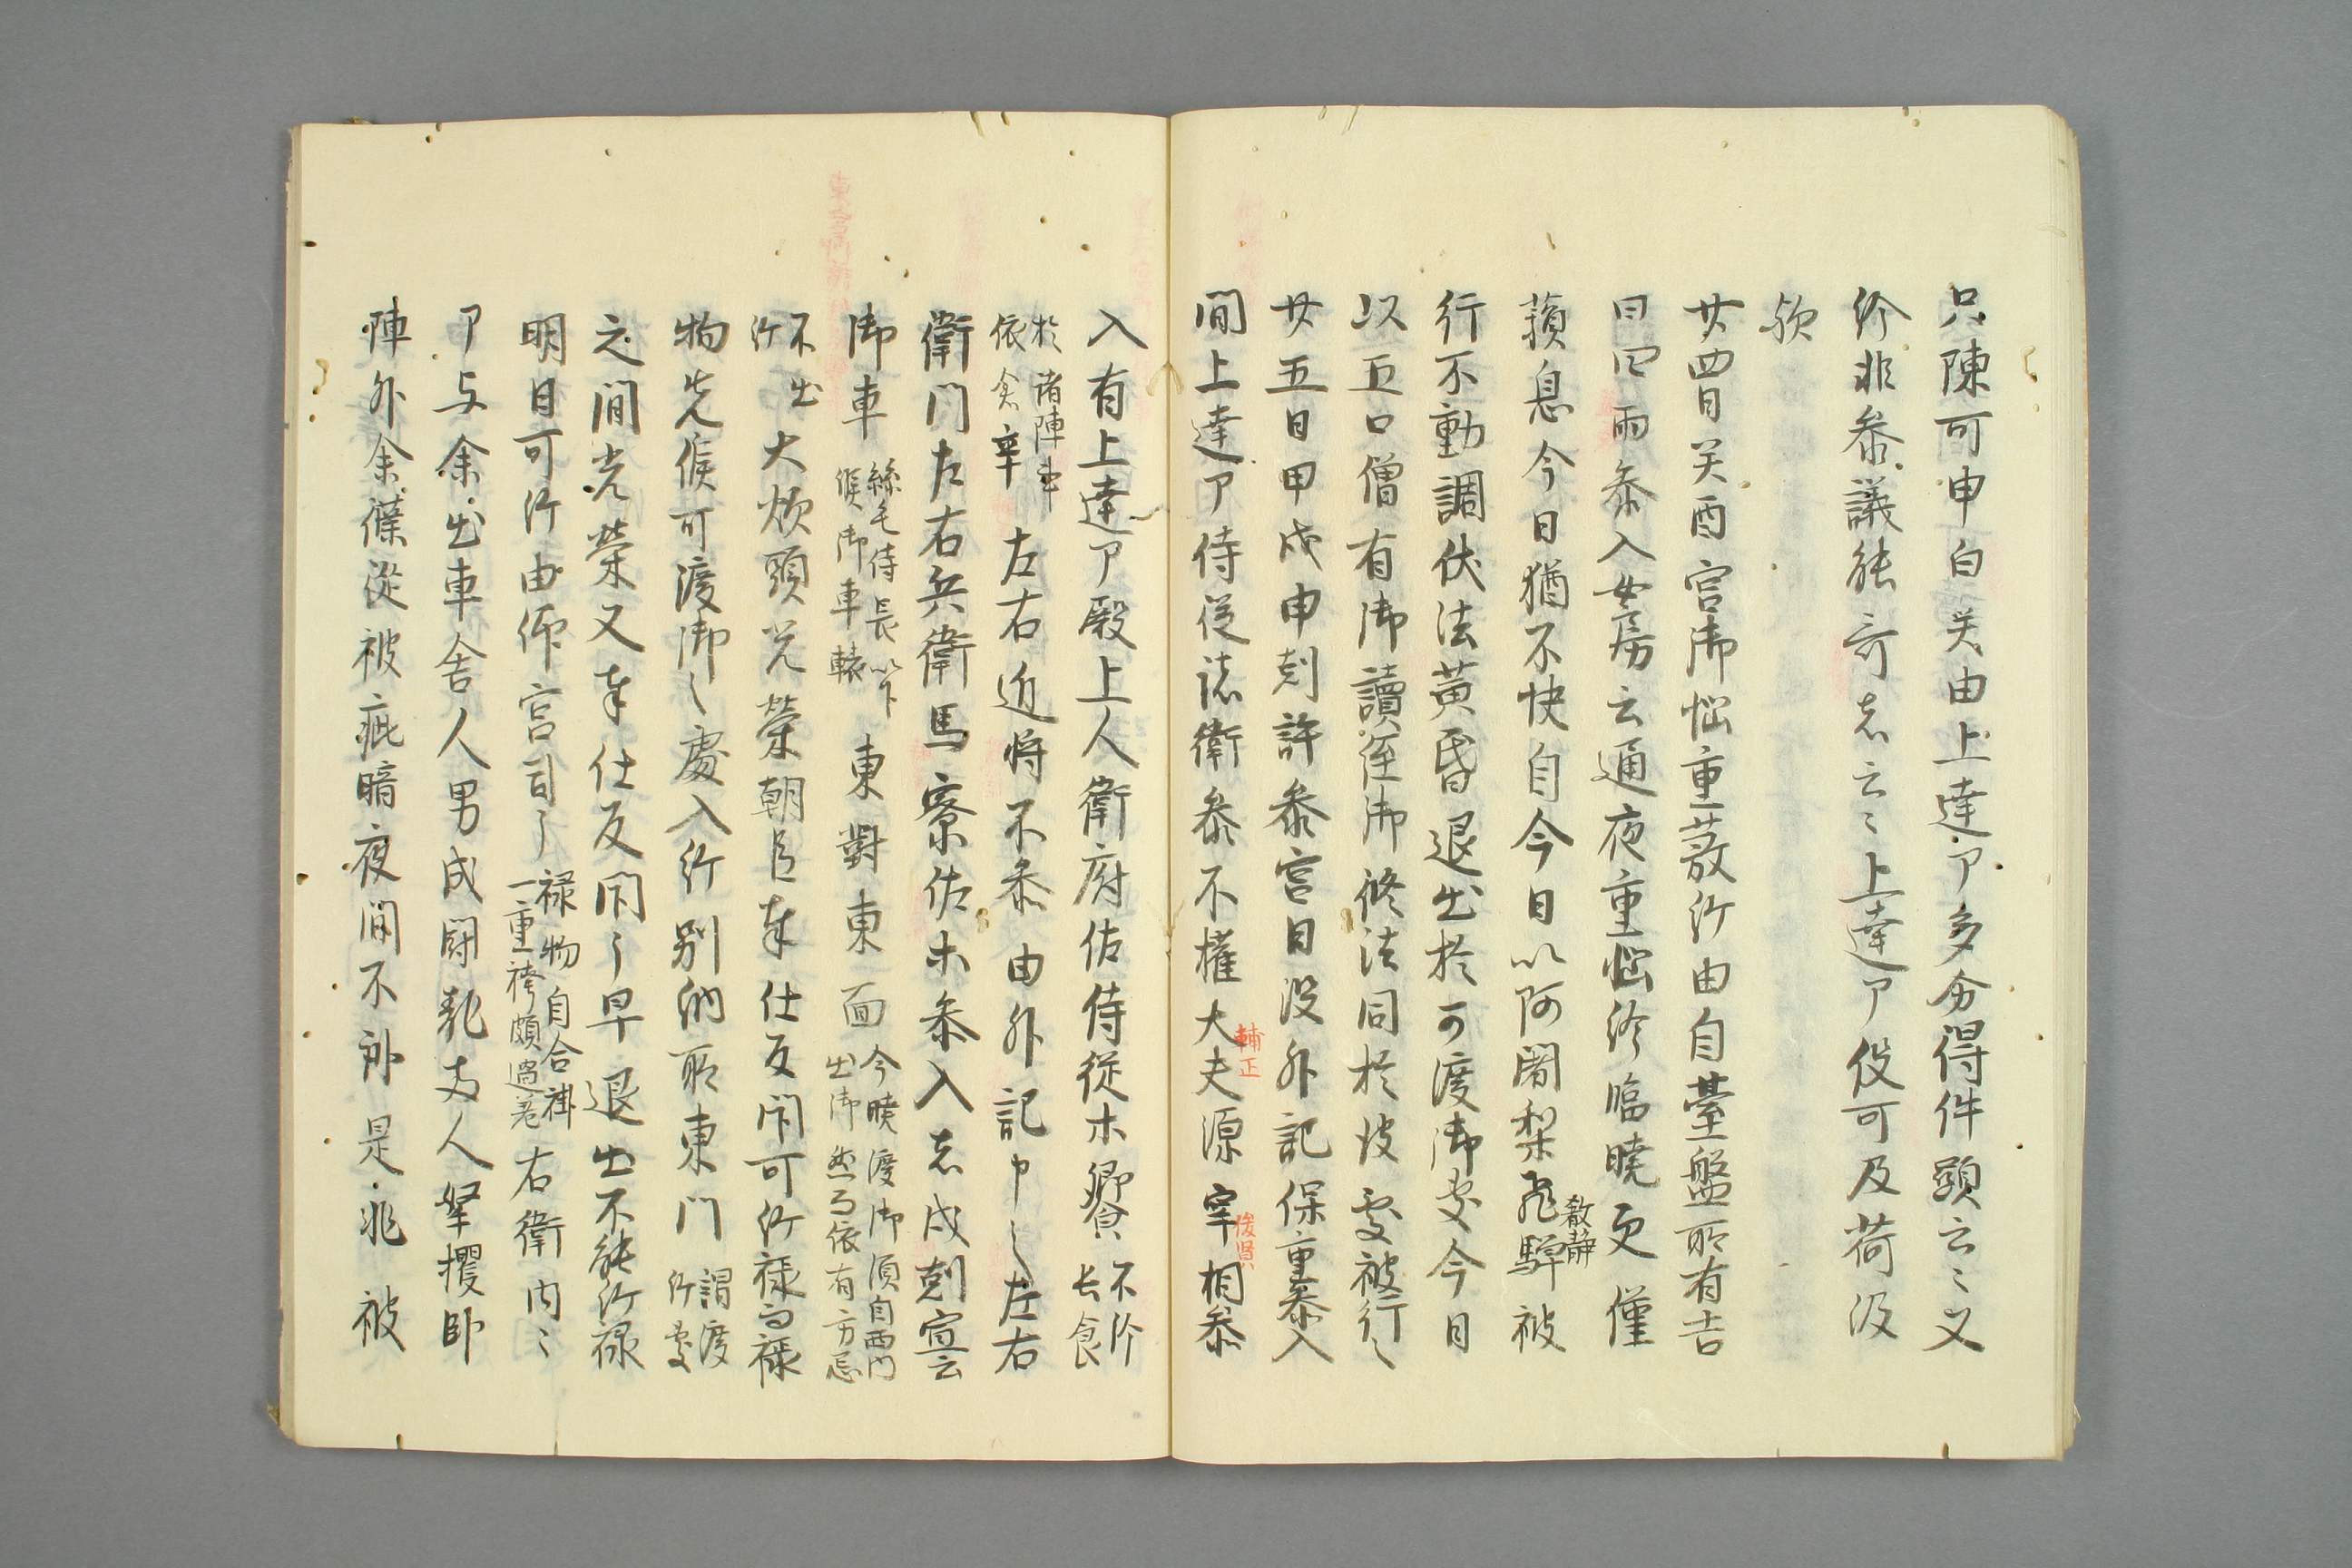 只陳可申白关由上達了多分得件顕云〻又
給非参議能哥者云〻上達了役可及荷汲
欤
廿四日关酉宮御悩重發給由自臺盤所有告
日四雨参入女房云通夜重悩給臨暁更僅
蘓息今日猶不快自今日以阿闍梨 被
敎静
行不動調伏法黄昏退出於可渡御処今日
以五口僧有御讀経御修法同於彼処被行〻
廿五日甲戌申剋許参宮日没外記保重参入
間上達了侍従諸衛参不権大夫源宰相参
輔正
俊賢
入有上達了殿上人衛府佐侍従木饗
不給
長食
於諸陣
依 左右近将不参由外記申〻左右
衛門左右兵衛馬寮佐木参入者戌剋宣云
御車
絲毛侍長以下
候御車轅
東對東面
今暁渡御須自西門
出御然而依有方忌
不出
給 大炊頭光榮朝臣奉仕反閇可給禄而禄
物先候可渡御〻處入給別納所東門
謂渡
給処
之間光榮又奉仕反閇了早退出不能給禄
明日可給由仰宮司了
禄物自合褂
一重袴頗過差
右衛内〻
了与余出車舎人男成闘乱両人 攫
陣外余 従被疵暗夜間不 是非被